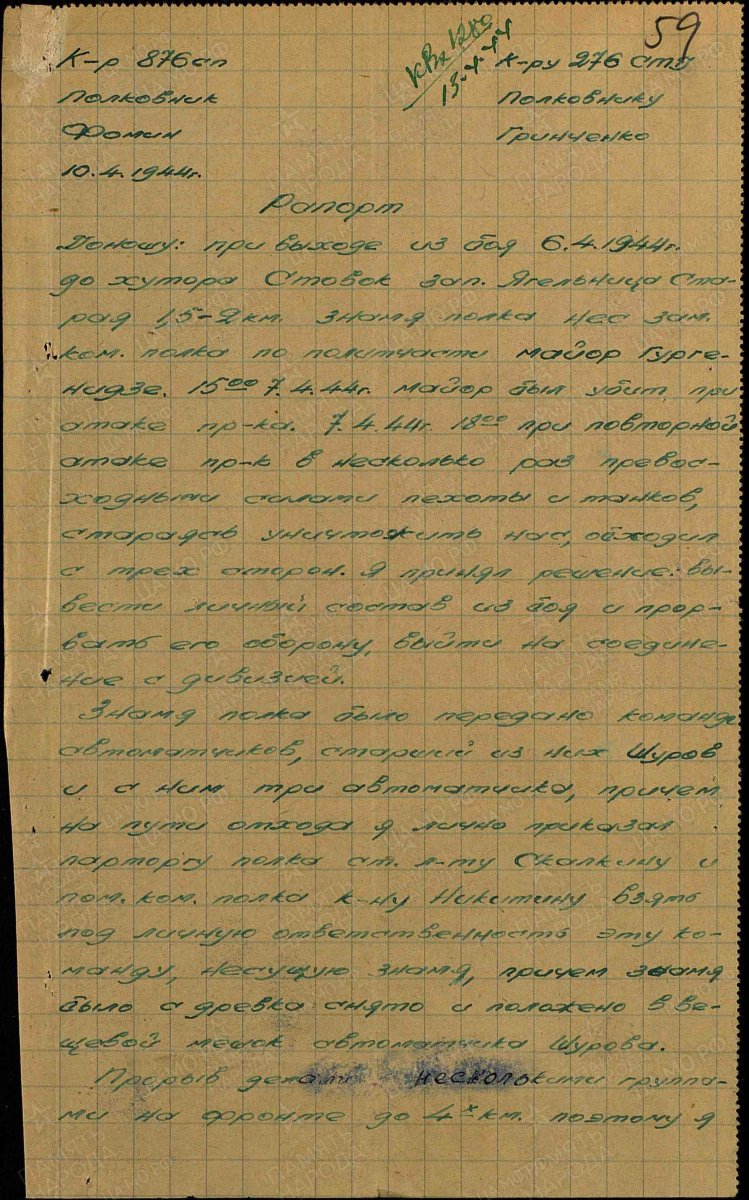 59
КВх 1280
13-4-44
К-р 876 сп К-ру 276 СТД
Полковник Полковнику
Фомин Гринченко
10.4.1944г.
Рапорт
Доношу: при выходе из боя 6.4.1944г.
до хутора Стовок зап. Ягельница Ста-
рая 1,5-2 км. знамя полка нес зам.
ком. полка по политчасти майор Гурге-
нидзе. 15⁰⁰ 7.4.44г. майор был убит при
атаке пр-ка. 7.4.44г. 18⁰⁰ при повторной
атаке пр-к в несколько раз превос-
ходными силами пехоты и танков,
стараясь уничтожить нас, обходил
с трех сторон. Я принял решение: вы-
вести личный состав из боя и прор-
вать его оборону, выйти на соедине-
ние с дивизией.
Знамя полка было передано команде
автоматчиков, старший из них Шуров
и с ним три автоматчика, причем
на пути отхода я лично приказал
парторгу полка ст. л-ту Скалкину и
пом. ком. полка к-ну Никитину взять
под личную ответственность эту ко-
манду, несущую знамя, причем знамя
было с древка снято и положено в ве-
щевой мешок автоматчика Шурова.
Прорыв делали несколькими группа-
ми на фронте до 4ˣ км. поэтому я
ПАМЯТЬ НАРОДА
ЦАМО.РФ